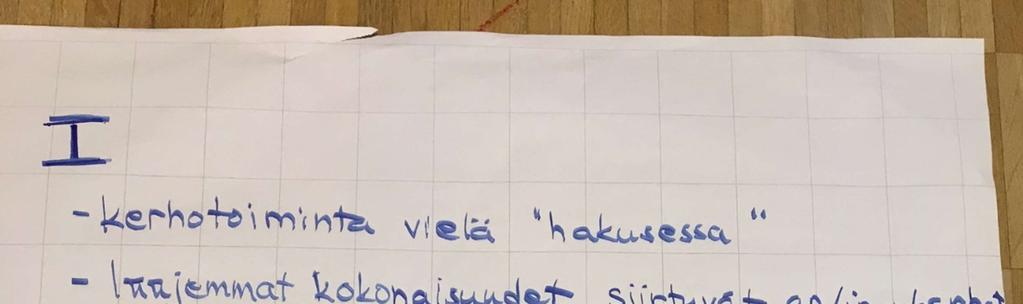 I
- kerhotoiminta vielä "hakusessa"
- laajemmat kokonaisuudet siirtyvät